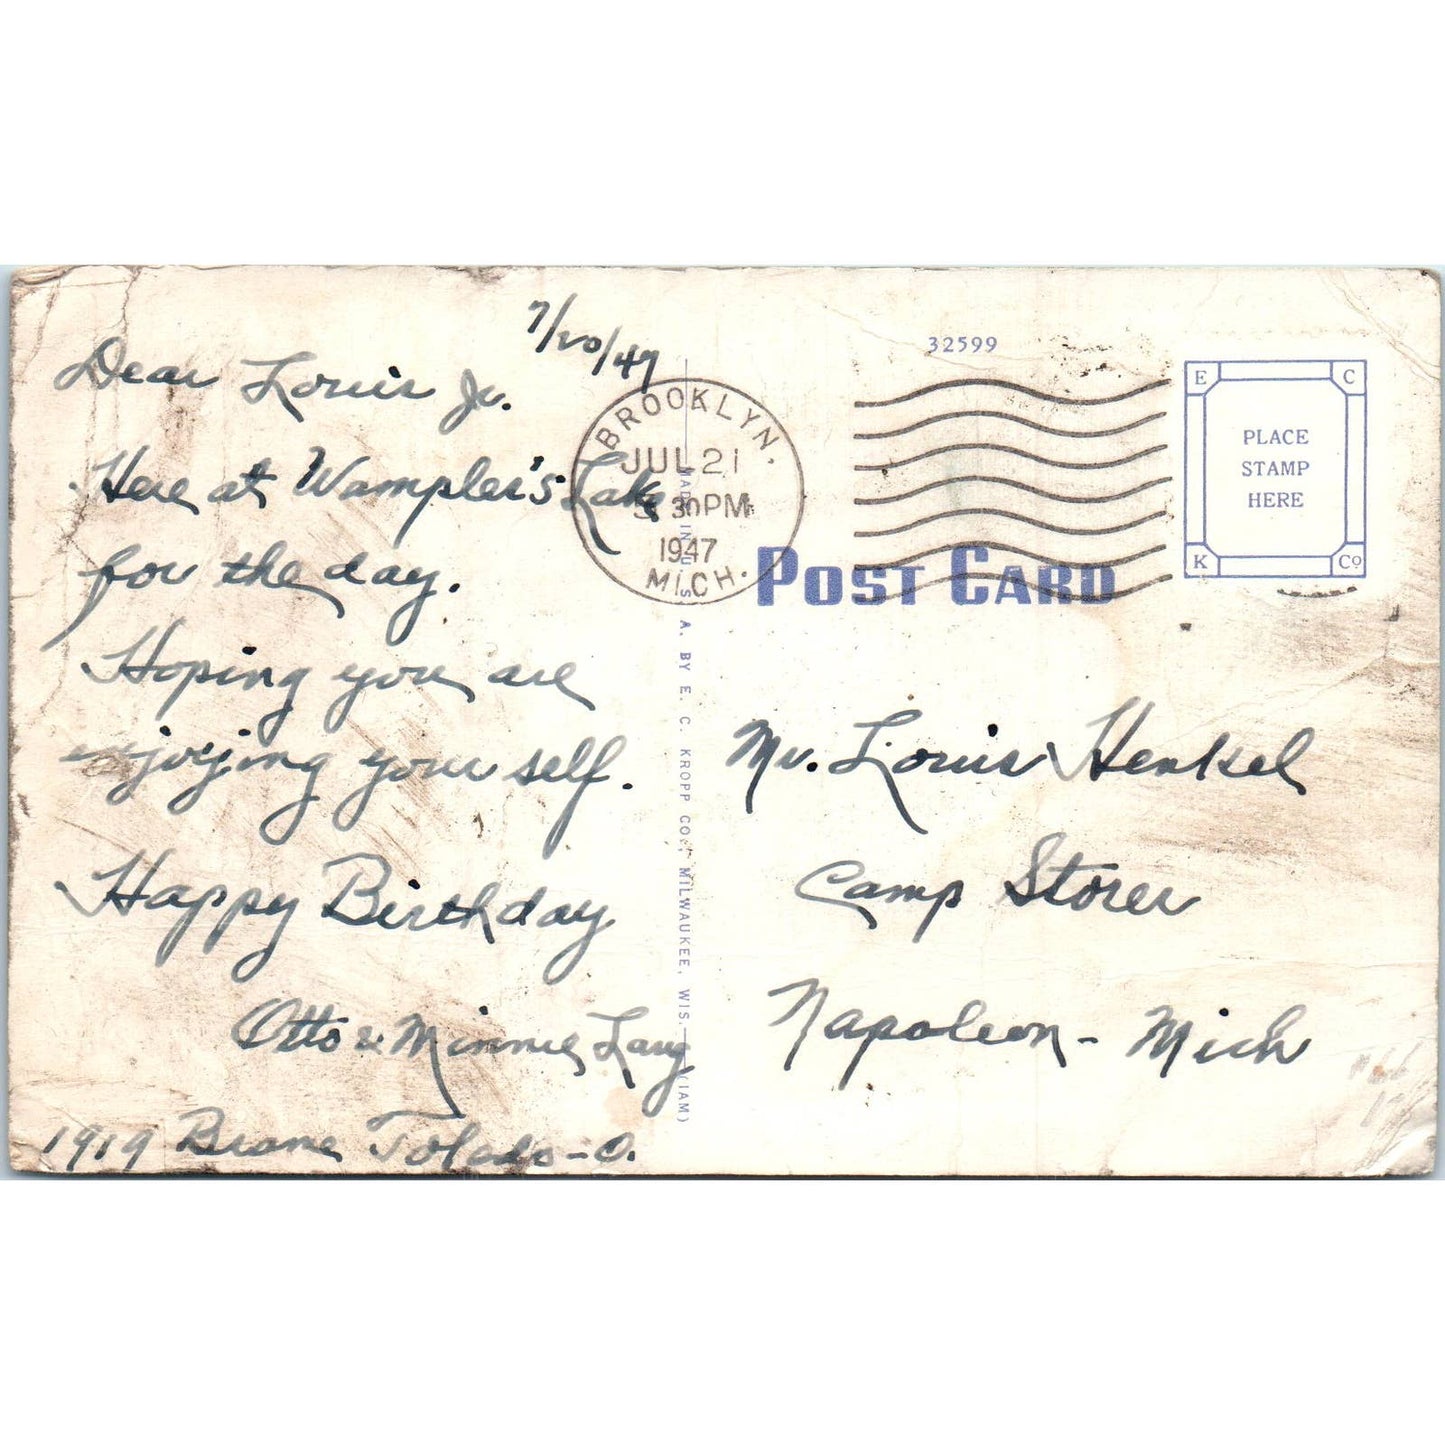 7/20/47
Dear Louis Jr.
Here at Wampler's Lake
for the day.
Hoping you are
enjoying yourself.
Happy Birthday
Otto & Minnie Lang
1919 Brame Toledo-O.
BROOKLYN,
JUL 21
30PM
1947
MICH.
32599
E C
PLACE
STAMP
HERE
K Co
POST CARD
MADE IN U. S. A. BY E. C. KROPP CO., MILWAUKEE, WIS.
Mr. Louis Henkel
Camp Storer
Napoleon - Mich